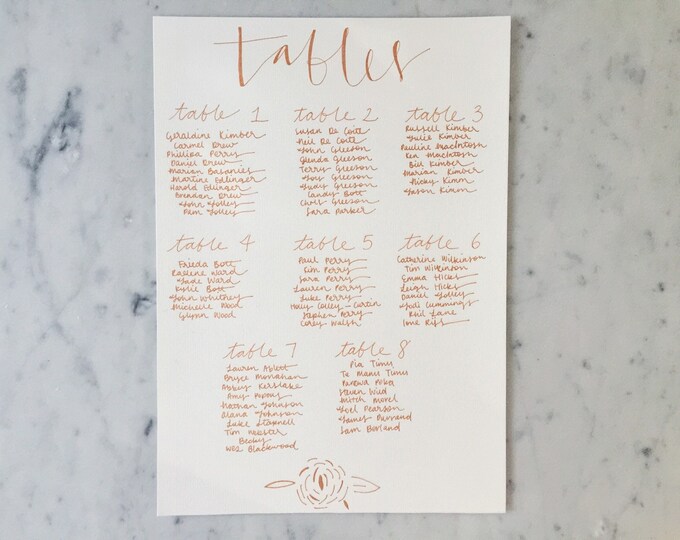 tables
table 1
Geraldine Kimber
Carmel Drew
Phillipa Perry
Daniel Drew
Marian Basanies
Martine Edlinger
Harold Edlinger
Brendan Drew
John Jolley
Pam Jolley
table 2
Susan De Coite
Neil De Coite
John Gleeson
Glenda Gleeson
Terry Gleeson
Joy Gleeson
Judy Gleeson
Candy Bott
Chris Gleeson
Sara Parker
table 3
Russell Kimber
Julie Kimber
Pauline MacIntosh
Ken MacIntosh
Bill Kimber
Marian Kimber
Nicky Kimm
Jason Kimm
table 4
Frieda Bott
Raelene Ward
Jade Ward
Kylie Bott
John Whitney
Michelle Wood
Glynn Wood
table 5
Paul Perry
Kim Perry
Sara Perry
Lauren Perry
Luke Perry
Holly Colley-Curtin
Stephen Perry
Corey Walsh
table 6
Catherine Wilkinson
Tim Wilkinson
Emma Hicks
Leigh Hicks
Daniel Jolley
Jodi Cummings
Phil Lane
table 7
Lauren Ablett
Bryce Monahan
Abbey Kerslake
Amy
Nathan Johnson
Alana Johnson
Luke
Tim
Becky
Wes Blackwood
table 8
Pia Timu
Te Manu Timu
Steven Wild
Mitch Morel
Joel Pearson
James
Sam Borland